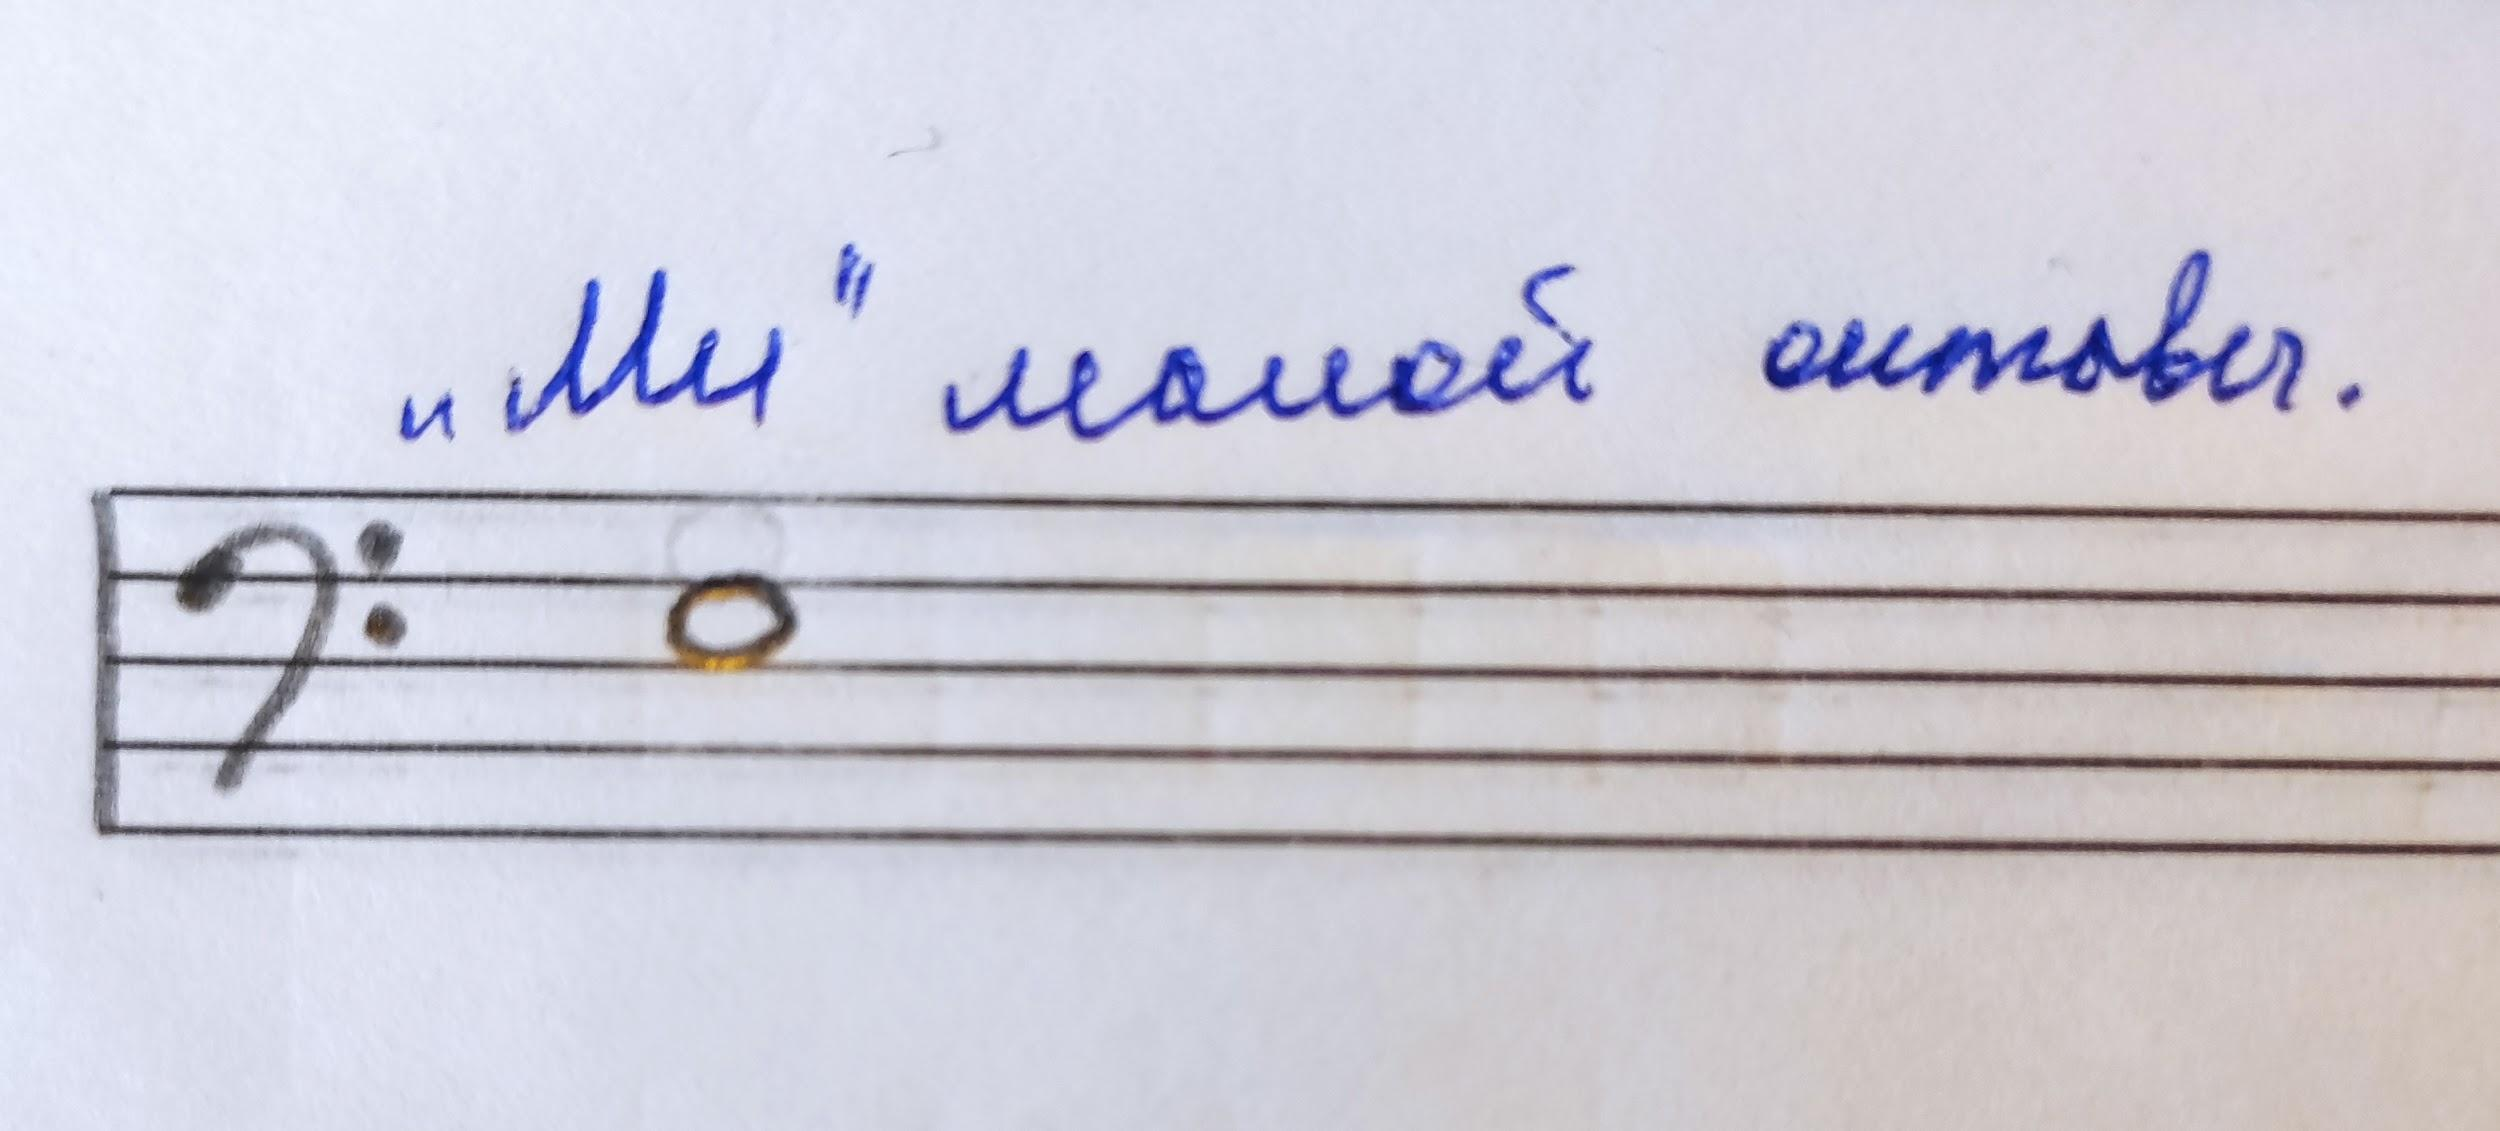 „Ми" малой октавы.